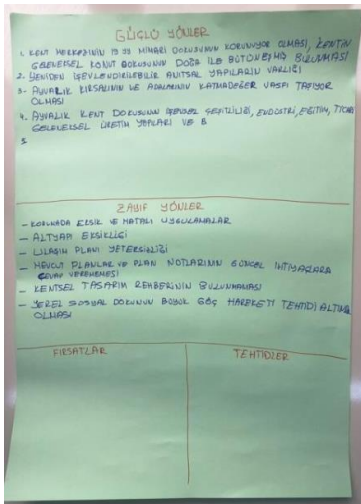 GÜÇLÜ YÖNLER
1. KENT MERKEZİNİN 19. YY MİMARİ DOKUSUNUN KORUNUYOR OLMASI, KENTİN
GELENEKSEL KONUT DOKUSUNUN DOĞA İLE BÜTÜNLEŞMİŞ BULUNMASI
2. YENİDEN İŞLEVLENDİRİLEBİLİR ANITSAL YAPILARIN VARLIĞI
3. AYVALIK KIRSALININ VE ADALARININ KATMADEĞER VASFI TAŞIYOR
OLMASI
4. AYVALIK KENT DOKUSUNUN İŞLEVSEL ÇEŞİTLİLİĞİ, ENDÜSTRİ, EĞİTİM, TİCARİ
GELENEKSEL ÜRETİM YAPILARI VE B
5
ZAYIF YÖNLER
- KORUMADA EKSİK VE HATALI UYGULAMALAR
- ALTYAPI EKSİKLİĞİ
- ULAŞIM PLANI YETERSİZLİĞİ
- MEVCUT PLANLAR VE PLAN NOTLARININ GÜNCEL İHTİYAÇLARA
CEVAP VEREMEMESİ
- KENTSEL TASARIM REHBERİNİN BULUNMAMASI
- YEREL SOSYAL DOKUNUN BÜYÜK GÖÇ HAREKETİ TEHTİDİ ALTINDA
OLMASI
FIRSATLAR
TEHTİDLER